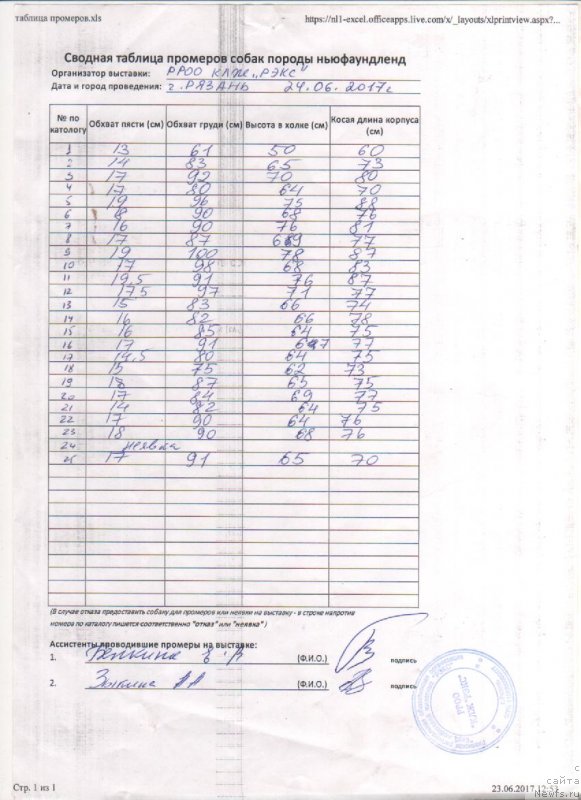 таблица промеров.xls https://nl1-excel.officeapps.live.com/x/_layouts/xlprintview.aspx?...
Сводная таблица промеров собак породы ньюфаундленд
Организатор выставки: РРОО КЛЖ „РЭКС"
Дата и город проведения: г. РЯЗАНЬ 24.06.2017г
№ по каталогу Обхват пясти (см) Обхват груди (см) Высота в холке (см) Косая длина корпуса (см)
1 13 61 50 60
2 14 83 65 73
3 17 92 70 80
4 17 80 64 70
5 19 96 75 88
6 18 90 68 76
7 16 90 76 81
8 17 87 77
9 19 100 78 87
10 17 98 68 83
11 19,5 91 76 87
12 17,5 97 71 77
13 15 83 66 74
14 16 82 66 78
15 16 85 64 75
16 17 91 77
17 14,5 80 64 75
18 15 75 62 73
19 18 87 65 75
20 17 84 69 77
21 14 82 64 75
22 17 90 64 76
23 18 90 68 76
24 неявка
25 17 91 65 70
(В случае отказа предоставить собаку для промеров или неявки на выставку - в строке напротив
номера по каталогу пишется соответственно "отказ" или "неявка")
Ассистенты проводившие промеры на выставке:
1. (Ф.И.О.) подпись
2. (Ф.И.О.) подпись
Стр. 1 из 1 23.06.2017 12:53
с сайта
Newfs.ru